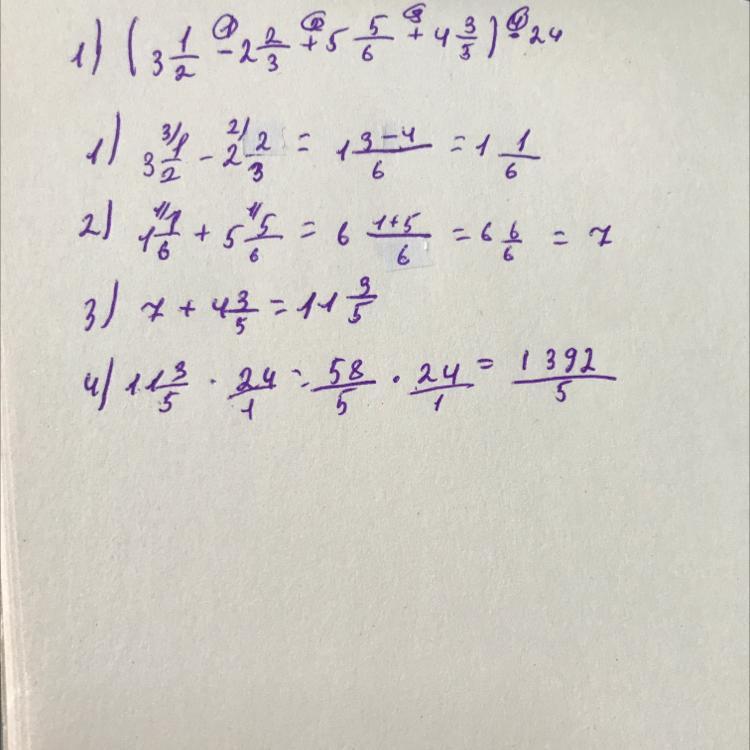 1) (3 1/2 -① 2 2/3 +② 5 5/6 +③ 4 3/5) ·④ 24
1) 3 1/2 ³⁾ - 2 2/3 ²⁾ = 1 (3-4)/6 = 1 1/6
2) 1 1/6 ¹⁾ + 5 5/6 ¹⁾ = 6 (1+5)/6 = 6 6/6 = 7
3) 7 + 4 3/5 = 11 3/5
4) 11 3/5 · 24/1 = 58/5 · 24/1 = 1392/5